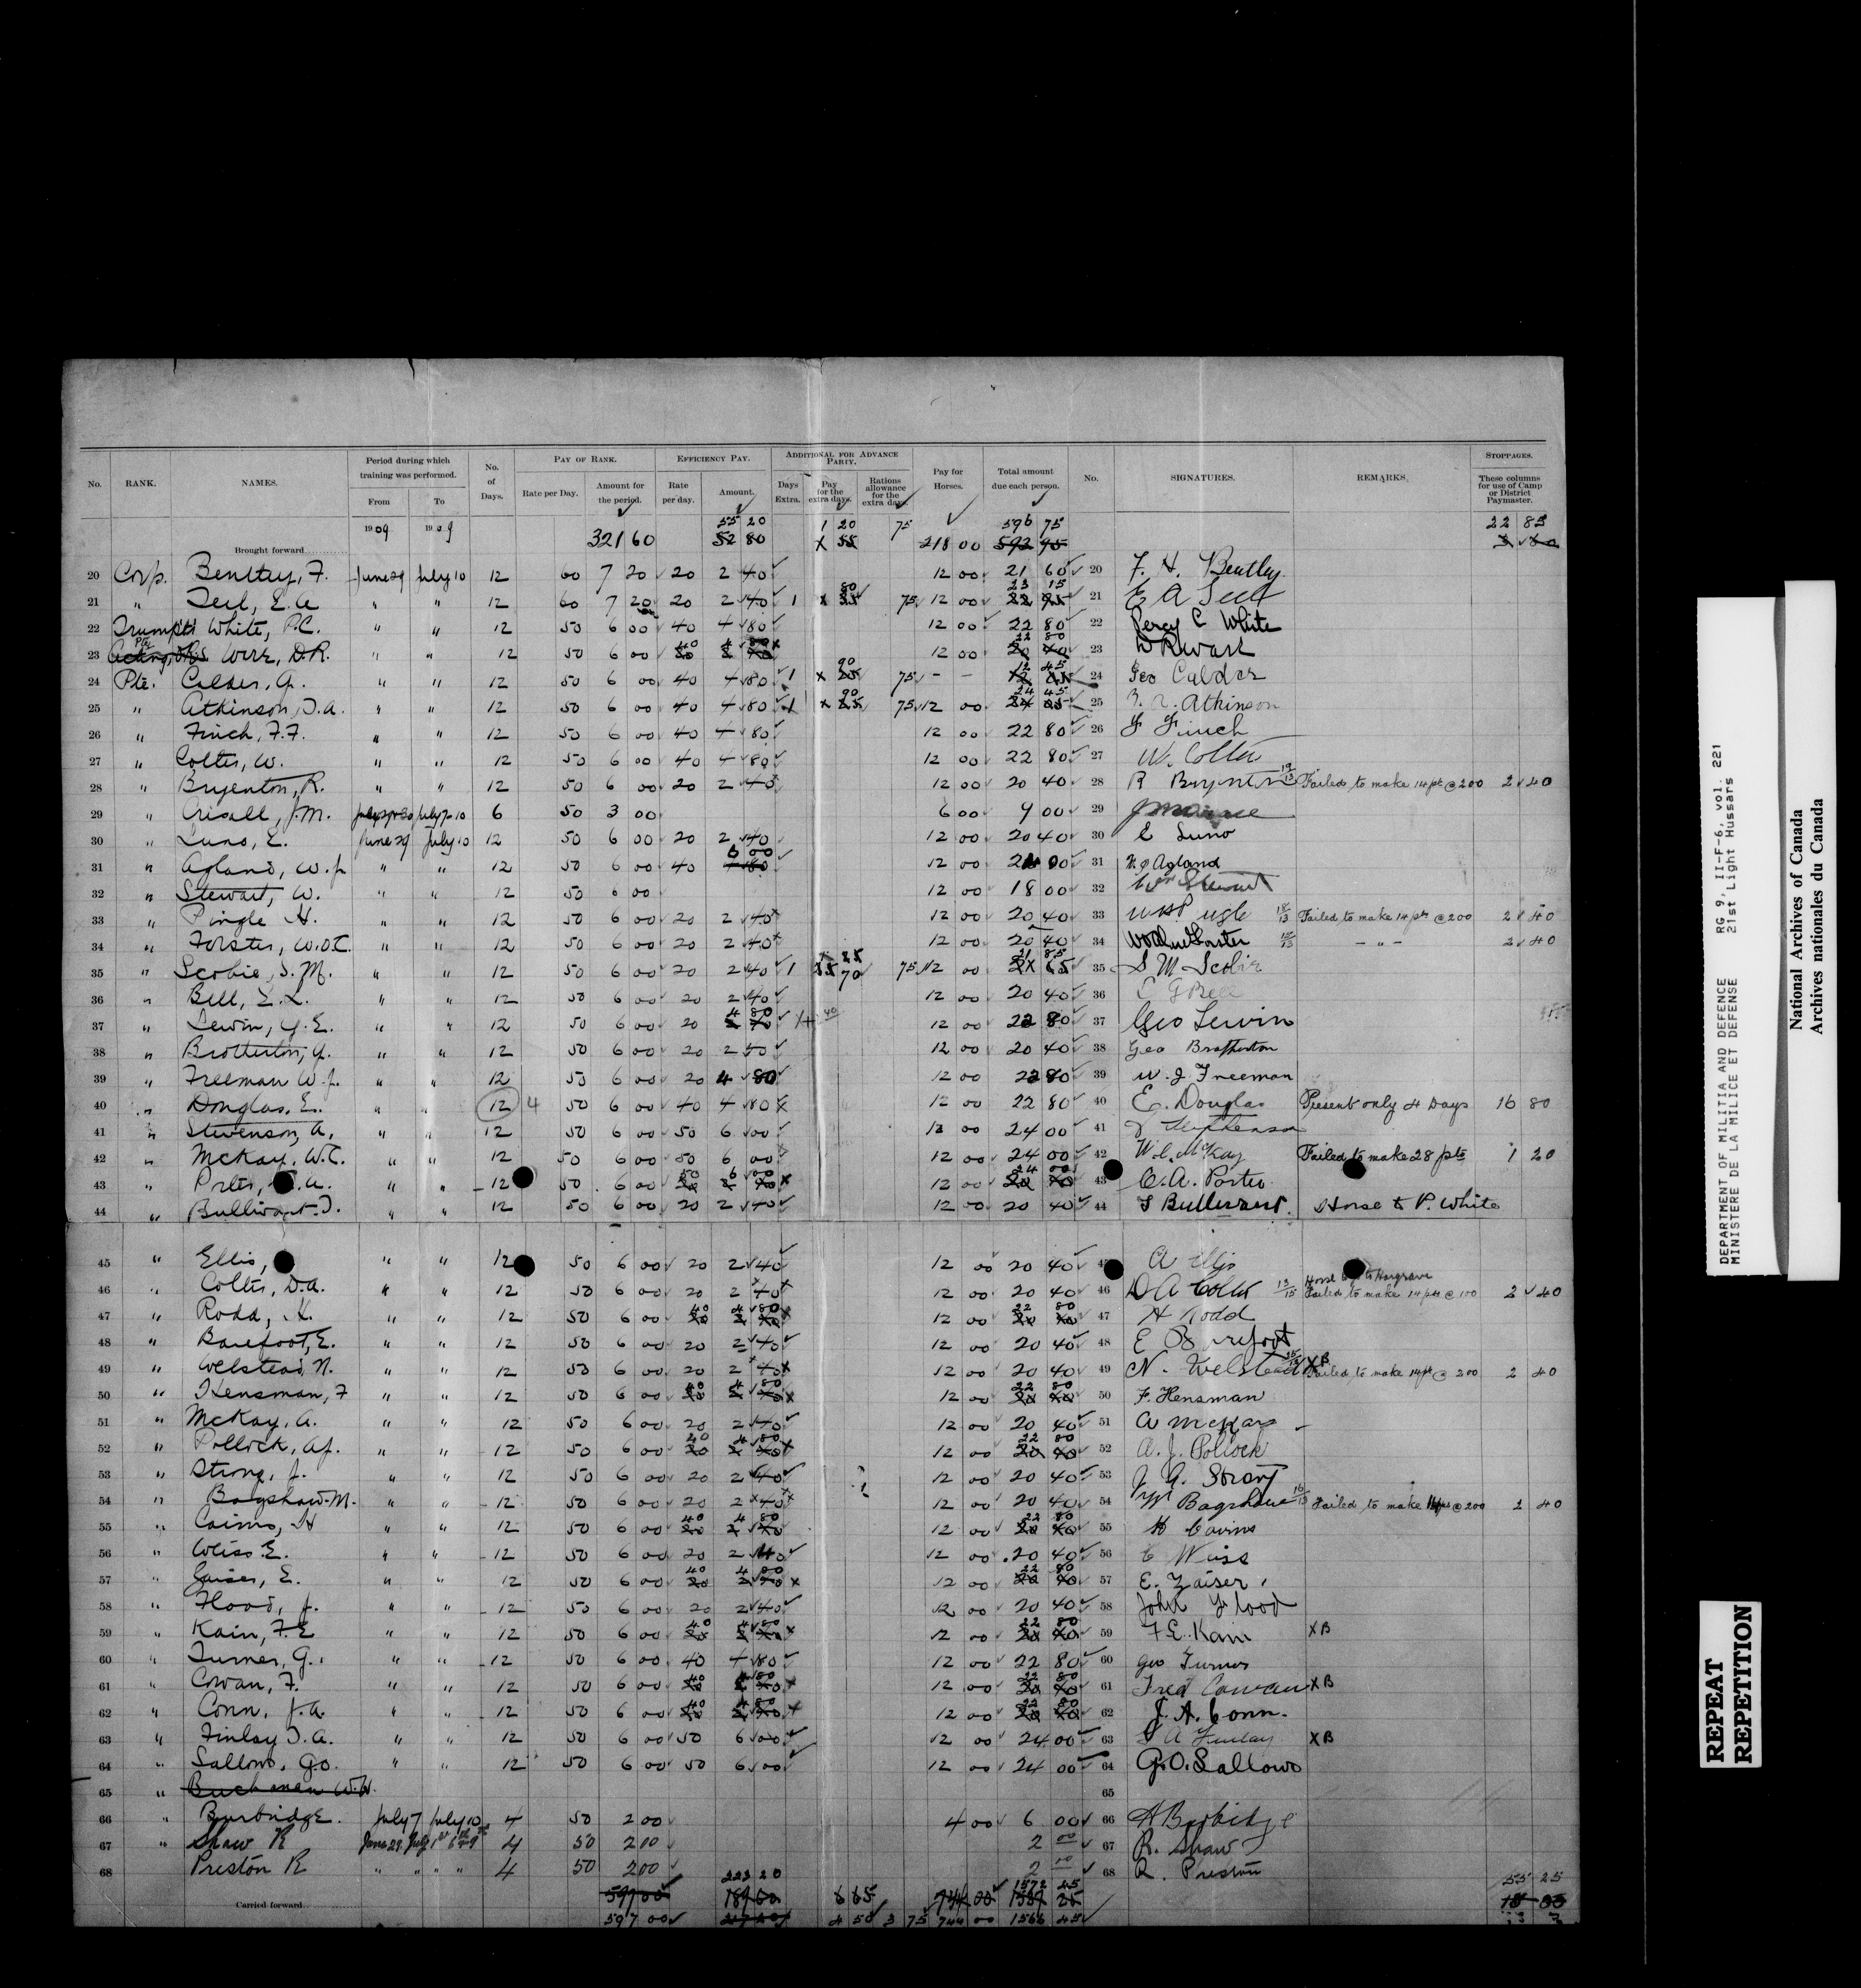 No. RANK. NAMES. Period during which training was performed. From To No. of Days. PAY OF RANK. Rate per Day. Amount for the period. EFFICIENCY PAY. Rate per day. Amount. ADDITIONAL FOR ADVANCE PARTY. Days Extra. Pay for the extra days. Rations allowance for the extra days. Pay for Horses. Total amount due each person. No. SIGNATURES. REMARKS. STOPPAGES. These columns for use of Camp or District Paymaster.
1909 1909 55 20 1 20 75 596 75 22 85
Brought forward 321 60 52 80 218 00 592 95
20 Corp. Bentley, F. June 29 July 10 12 60 7 20 20 2 40 12 00 21 60 20 F. H. Bentley
23 15
21 " E. A 12 60 7 20 20 2 40 1 75 12 00 21 E A
22 White, P.C. " " 12 50 6 00 40 4 80 12 00 22 80 22 Percy C White
23 D.R. " " 12 50 6 00 12 00 22 80 23
24 Pte. Calder, G. " " 12 50 6 00 40 4 80 1 90 75 - - 12 45 24 Geo Calder
25 " Atkinson, T.A. " " 12 50 6 00 40 4 80 1 90 75 12 00 24 45 25 T. A. Atkinson
26 " Finch, F.F. " " 12 50 6 00 40 4 80 12 00 22 80 26 F Finch
27 " Colter, W. " " 12 50 6 00 40 4 80 12 00 22 80 27 W. Colter
28 " Bryenton, R. " " 12 50 6 00 20 2 40 12 00 20 40 28 R Bryenton Failed to make 14 pt @ 200 2 40
29 " J.M. 6 50 3 00 6 00 9 00 29
30 " Luno, E. June 29 July 10 12 50 6 00 20 2 40 12 00 20 40 30 E Luno
31 " Agland, W.J. " " 12 50 6 00 40 6 00 12 00 24 00 31 W. J Agland
32 " Stewart, W. " " 12 50 6 00 12 00 18 00 32 Wm Stewart
33 " Pingle H. " " 12 50 6 00 20 2 40 12 00 20 40 33 Failed to make 14 pts @ 200 2 40
34 " Forster, W. " " 12 50 6 00 20 2 40 12 00 20 40 34 - " - 2 40
35 " Scobie, S.M. " " 12 50 6 00 20 2 40 1 75 12 00 21 85 35 S M Scobie
36 " Bell, " " 12 50 6 00 20 2 40 12 00 20 40 36 Bell
37 " Lewin, G.E. " " 12 50 6 00 20 4 80 12 00 22 80 37 Geo Lewin
38 " Brotherton, G. " " 12 50 6 00 20 12 00 20 40 38 Geo Brotherton
39 " Freeman W.J. " " 12 50 6 00 20 4 80 12 00 22 80 39 W. J. Freeman
40 " Douglas, E. " " 12 4 50 6 00 40 4 80 12 00 22 80 40 E. Douglas Present only 4 Days 16 80
41 " Stevenson, A. " " 12 50 6 00 50 6 00 12 00 24 00 41
42 " McKay, W.C. " " 12 50 6 00 50 6 00 12 00 24 00 42 W. C. McKay Failed to make 28 pts 1 20
43 " Porter, A. " " 12 50 6 00 50 6 00 12 00 24 00 43 C. A. Porter
44 " Bullivant " " 12 50 6 00 20 2 40 12 00 20 40 44 Bullivant Horse to P. White
45 " Ellis, " " 12 50 6 00 20 2 40 12 00 20 40 45 A Ellis
46 " Colter, D.A. " " 12 50 6 00 20 2 40 12 00 20 40 46 D A Colter Failed to make 14 pts @ 100 2 40
47 " Rodd, H. " " 12 50 6 00 40 4 80 12 00 22 80 47 H Rodd
48 " Barefoot, E. " " 12 50 6 00 20 2 40 12 00 20 40 48 E Barefoot
49 " Welstead, N. " " 12 50 6 00 20 2 40 12 00 20 40 49 N. Welstead XB Failed to make 14 pt @ 200 2 40
50 " Hensman, F " " 12 50 6 00 40 4 80 12 00 22 80 50 F. Hensman
51 " McKay, A. " " 12 50 6 00 20 2 40 12 00 20 40 51 A McKay
52 " Pollock, A.J. " " 12 50 6 00 40 4 80 12 00 22 80 52 A. J. Pollock
53 " Strong, J. " " 12 50 6 00 20 2 40 12 00 20 40 53 J. G. Strong
54 " Bagshaw M. " " 12 50 6 00 20 2 40 12 00 20 40 54 M Bagshaw Failed to make 14 pts @ 200 2 40
55 " Cairns, H " " 12 50 6 00 40 4 80 12 00 22 80 55 H Cairns
56 " Weiss E. " " 12 50 6 00 20 2 40 12 00 20 40 56 E Weiss
57 " E. " " 12 50 6 00 40 4 80 12 00 22 80 57 E. Zaiser
58 " Flood, J. " " 12 50 6 00 20 2 40 12 00 20 40 58 John Flood
59 " Kain, F.E " " 12 50 6 00 40 4 80 12 00 22 80 59 F E. Kain XB
60 " Turner, G. " " 12 50 6 00 40 4 80 12 00 22 80 60 Geo Turner
61 " Cowan, F. " " 12 50 6 00 40 4 80 12 00 22 80 61 Fred Cowan XB
62 " Conn, J.A. " " 12 50 6 00 40 4 80 12 00 22 80 62 J. A. Conn.
63 " Finlay T.A. " " 12 50 6 00 50 6 00 12 00 24 00 63 A Finlay XB
64 " Sallows, G.O. " " 12 50 6 00 50 6 00 12 00 24 00 64 G. O. Sallows
65 " Buchanan W.W. 65
66 " Burbridge. July 7 July 10 4 50 2 00 4 00 6 00 66 A Burbidge
67 " Shaw R June 29 4 50 2 00 2 00 67 R. Shaw
68 Preston R " " " " 4 50 2 00 2 00 68 R. Preston
223 20 1572 45 55 25
Carried forward 597 00 189 60 6 65 744 00
597 00 4 50 3 75 744 00 1566 45
DEPARTMENT OF MILITIA AND DEFENCE RG 9, II-F-6, vol. 221
MINISTERE DE LA MILICE ET DEFENSE 21st Light Hussars
National Archives of Canada
Archives nationales du Canada
REPEAT
REPETITION